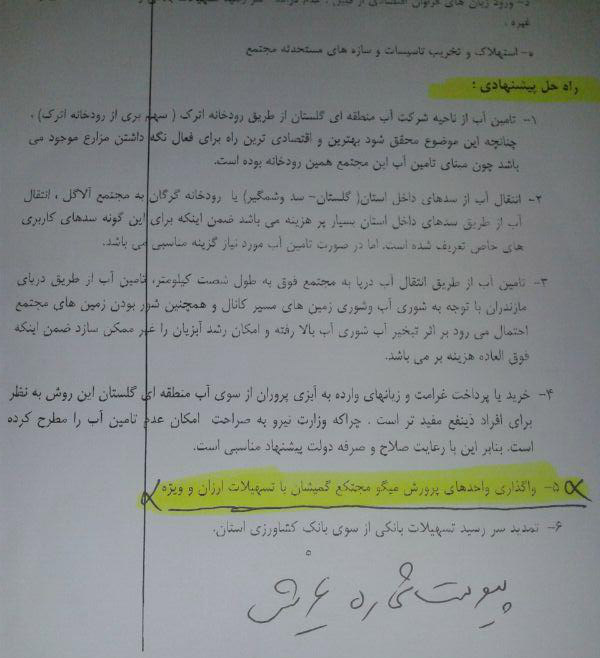 د- ورود زیان های فراوان اقتصادی از قبیل ، عدم درآمد - سر رسید تسهیلات
غیره ،
ه- استهلاک و تخریب تاسیسات و سازه های مستحدثه مجتمع
راه حل پیشنهادی :
۱- تامین آب از ناحیه شرکت آب منطقه ای گلستان از طریق رودخانه اترک ( سهم بری از رودخانه اترک) ،
چنانچه این موضوع محقق شود بهترین و اقتصادی ترین راه برای فعال نگه داشتن مزارع موجود می
باشد چون مبنای تامین آب این مجتمع همین رودخانه بوده است.
۲- انتقال آب از سدهای داخل استان( گلستان- سد وشمگیر) یا رودخانه گرگان به مجتمع آلاگل ، انتقال
آب از طریق سدهای داخل استان بسیار پر هزینه می باشد ضمن اینکه برای این گونه سدهای کاربری
های خاص تعریف شده است. اما در صورت تامین آب مورد نیاز گزینه مناسبی می باشد.
۳- تامین آب از طریق انتقال آب دریا به مجتمع فوق به طول شصت کیلومتر، تامین آب از طریق دریای
مازندران با توجه به شوری آب وشوری زمین های مسیر کانال و همچنین شور بودن زمین های مجتمع
احتمال می رود بر اثر تبخیر آب شوری آب بالا رفته و امکان رشد آبزیان را غیر ممکن سازد ضمن اینکه
فوق العاده هزینه بر می باشد.
۴- خرید یا پرداخت غرامت و زیانهای وارده به آبزی پروران از سوی آب منطقه ای گلستان این روش به نظر
برای افراد ذینفع مفید تر است . چراکه وزارت نیرو به صراحت امکان عدم تامین آب را مطرح کرده
است. بنابر این با رعایت صلاح و صرفه دولت پیشنهاد مناسبی است.
۵- واگذاری واحدهای پرورش میگو مجتکع گمیشان با تسهیلات ارزان و ویژه
۶- تمدید سر رسید تسهیلات بانکی از سوی بانک کشاورزی استان.
پیوست شماره